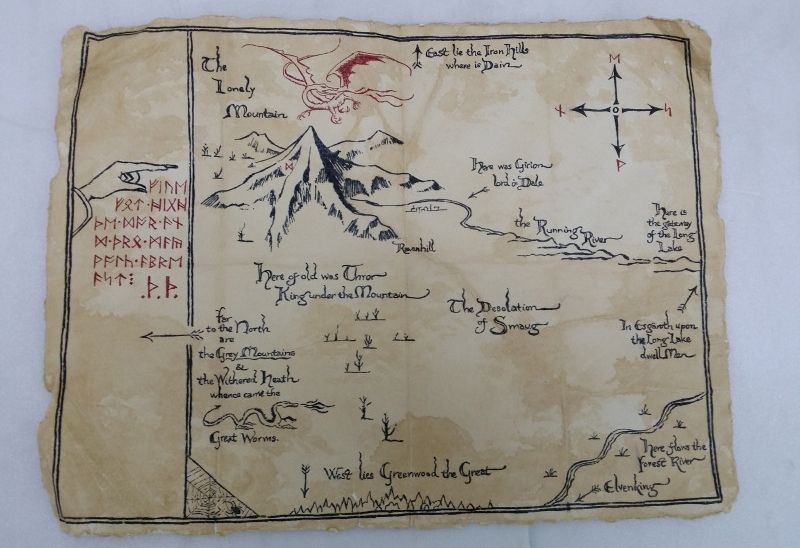 The
Lonely
Mountain
East lie the Iron Hills
where is Dain
ᛖ
ᚾ
ᛋ
ᚹ
ᛞ
Here was Girion
lord in Dale
ᚠᛁᚢᛖ
ᚠᛟᛏ·ᚻᛁᚷᚻ
ᚦᛖ·ᛞᛟᚱ·ᚪᚾ
ᛞ·ᚦᚱᛟ·ᛗᚪᚣ
ᚹᚪᛚᚳ·ᚪᛒᚱᛖ
ᚪᛋᛏ᛬
.ᚦ.ᚦ.
the Running
River
Here is
the gateway
of the Long
Lake
Ravenhill
Here of old was Thror
King under the Mountain
The Desolation
of Smaug
In Esgaroth upon
the Long Lake
dwell Men
Far
to the North
are
the Grey Mountains
&
the Withered Heath
whence came the
Great Worms.
West lies Greenwood the Great
Here flows the
Forest River
Elvenking